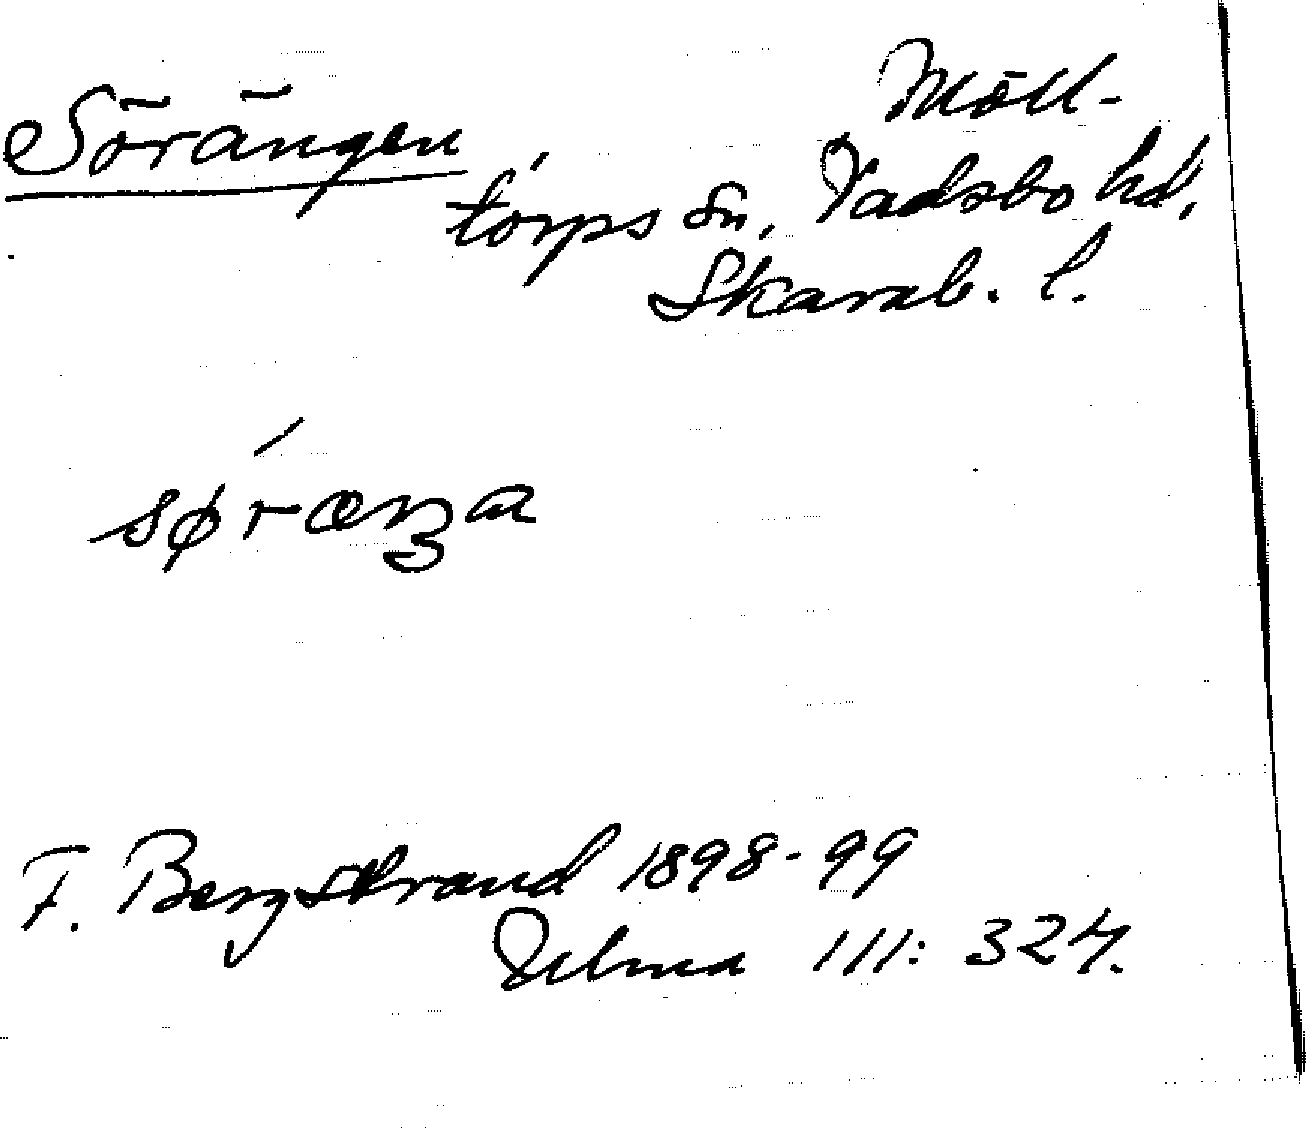 Sörängen
Möll-
torps sn, Vadsbo hd,
Skarab. l.
søræŋa
F. Bergstrand 1898-99
III: 324.